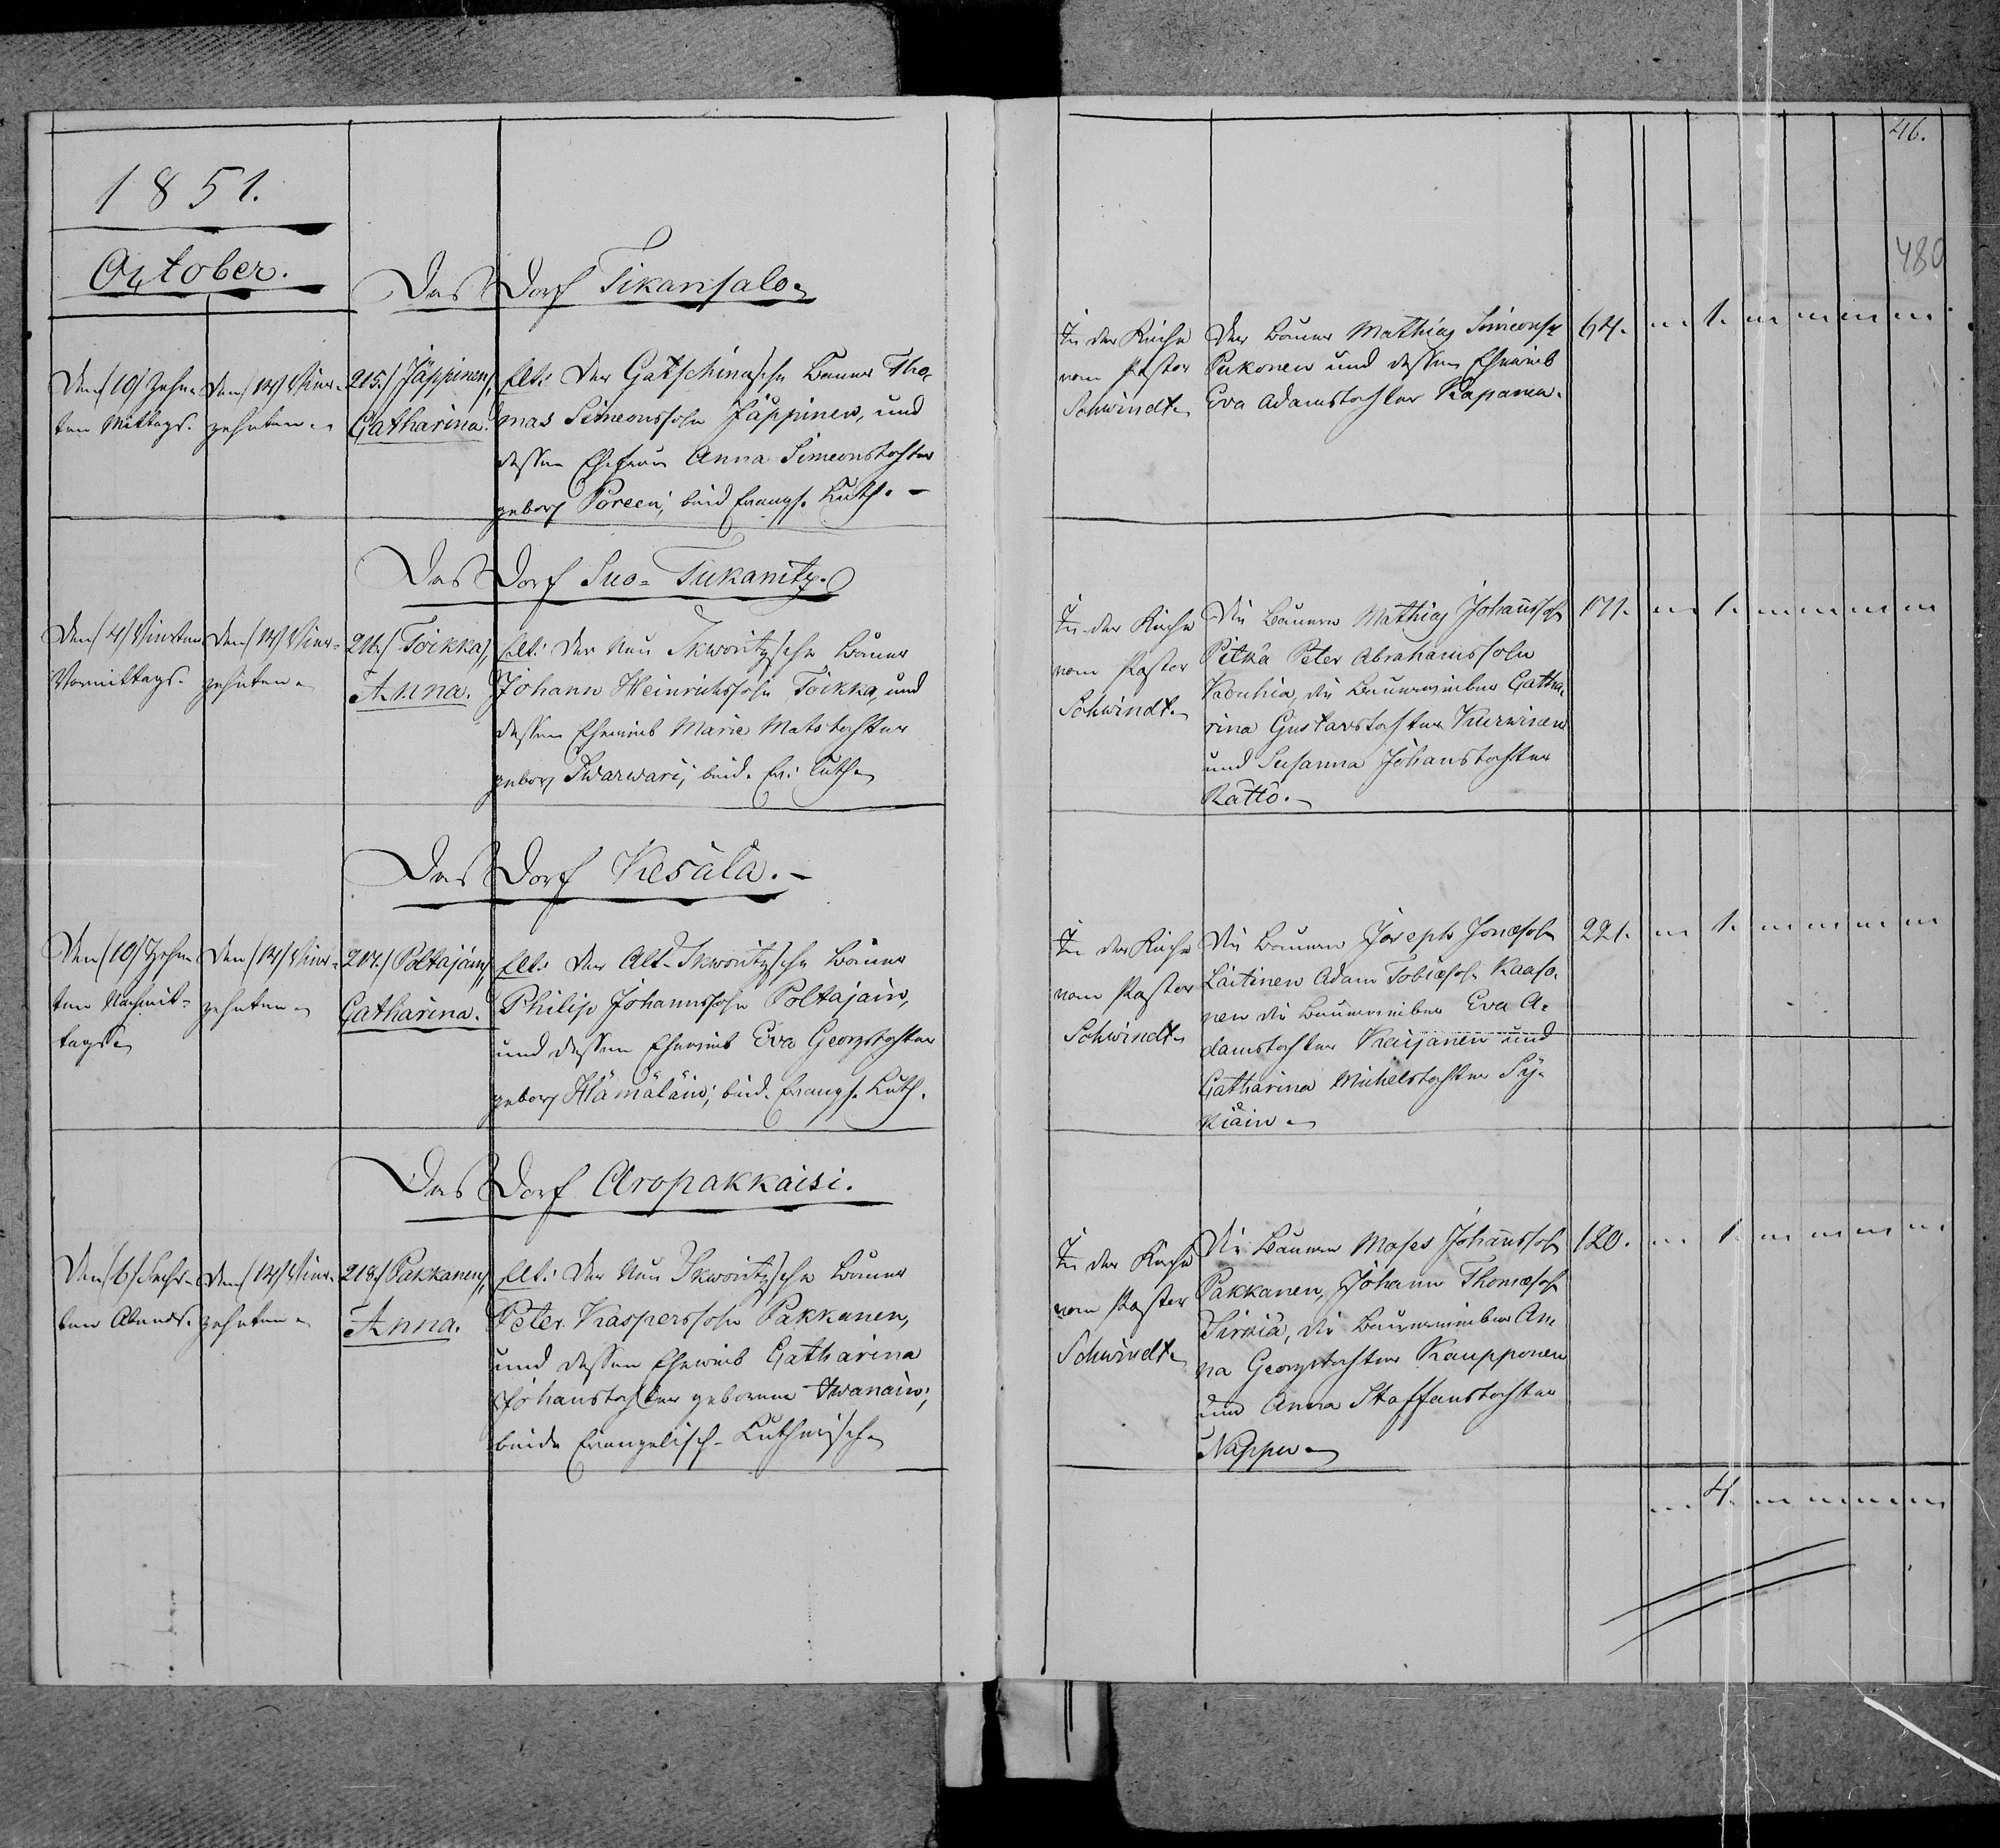 46.
480
1851.
October.
Das Dorf Tikansalo.
Den (10) Zehn-
ten Mittags.
Den (14) Vier-
zehnten.
215.) Jäppinen,
Catharina.
Elt: Der Gatschinasche Bauer Tho-
mas Simeonssohn Jäppinen, und
dessen Ehefrau Anna Simeonstochter
geborn Poreen; beid Evangel. Luth. –
In der Kirche
vom Pastor
Schwindt.
Der Bauer Mathias Simeons
Pukonen und dessen Eheweib
Eva Adamstochter Kapanen.
64.
1.
Das Dorf Suo-Tukanitz.
Den (4) Vierten
Vormittags.
Den (14) Vier-
zehnten.
216.) Toikka,
Anna.
Elt: Der Neu Skworitzsche Bauer
Johann Heinrichssohn Toikka, und
dessen Eheweib Marie Matstochter
geborn Warwari; beid. Ev: Luth.
In der Kirche
vom Pastor
Schwindt.
Die Bauern Mathias Johannssohn
Pitkä Peter Abrahamssohn
die Bauernweiber Catha-
rina Gustavstochter Kurwinen
und Susanna Johanstochter
Rättö.
171.
1.
Das Dorf Kesälä. –
Den (10) Zehn-
ten Nachmit-
tags.
Den (14) Vier-
zehnten.
217.) Poltajain,
Catharina.
Elt: Der Alt-Skworitzsche Bauer
Philip Johannssohn Poltajain,
und dessen Eheweib Eva Georgstochter
geborn Hämäläin; beid. Evangel. Luth.
In der Kirche
vom Pastor
Schwindt.
Die Bauern Joseph Jonassohn
Laitinen Adam Tobiassohn Kaaso-
nen die Bauernweiber Eva A-
damstochter Kaijanen und
Catharina Michelstochter Sy-
kiäin.
221.
1.
Das Dorf Aropakkaisi.
Den (6) Sechs-
ten Abends.
Den (14) Vier-
zehnten.
218.) Pakkanen,
Anna.
Elt: Der Neu Skworitzsche Bauer
Peter Kasperssohn Pakkanen,
und dessen Eheweib Catharina
Johanstochter geborene Iwanain;
beide Evangelisch-Lutherisch.
In der Kirche
vom Pastor
Schwindt.
Die Bauern Moses Johannssohn
Pakkanen, Johann Thomassohn
Sirkiä, die Bauernweiber An-
na Georgstochter Kaupponen
und Anna Staffanstochter
Nappu.
120.
1.
4.